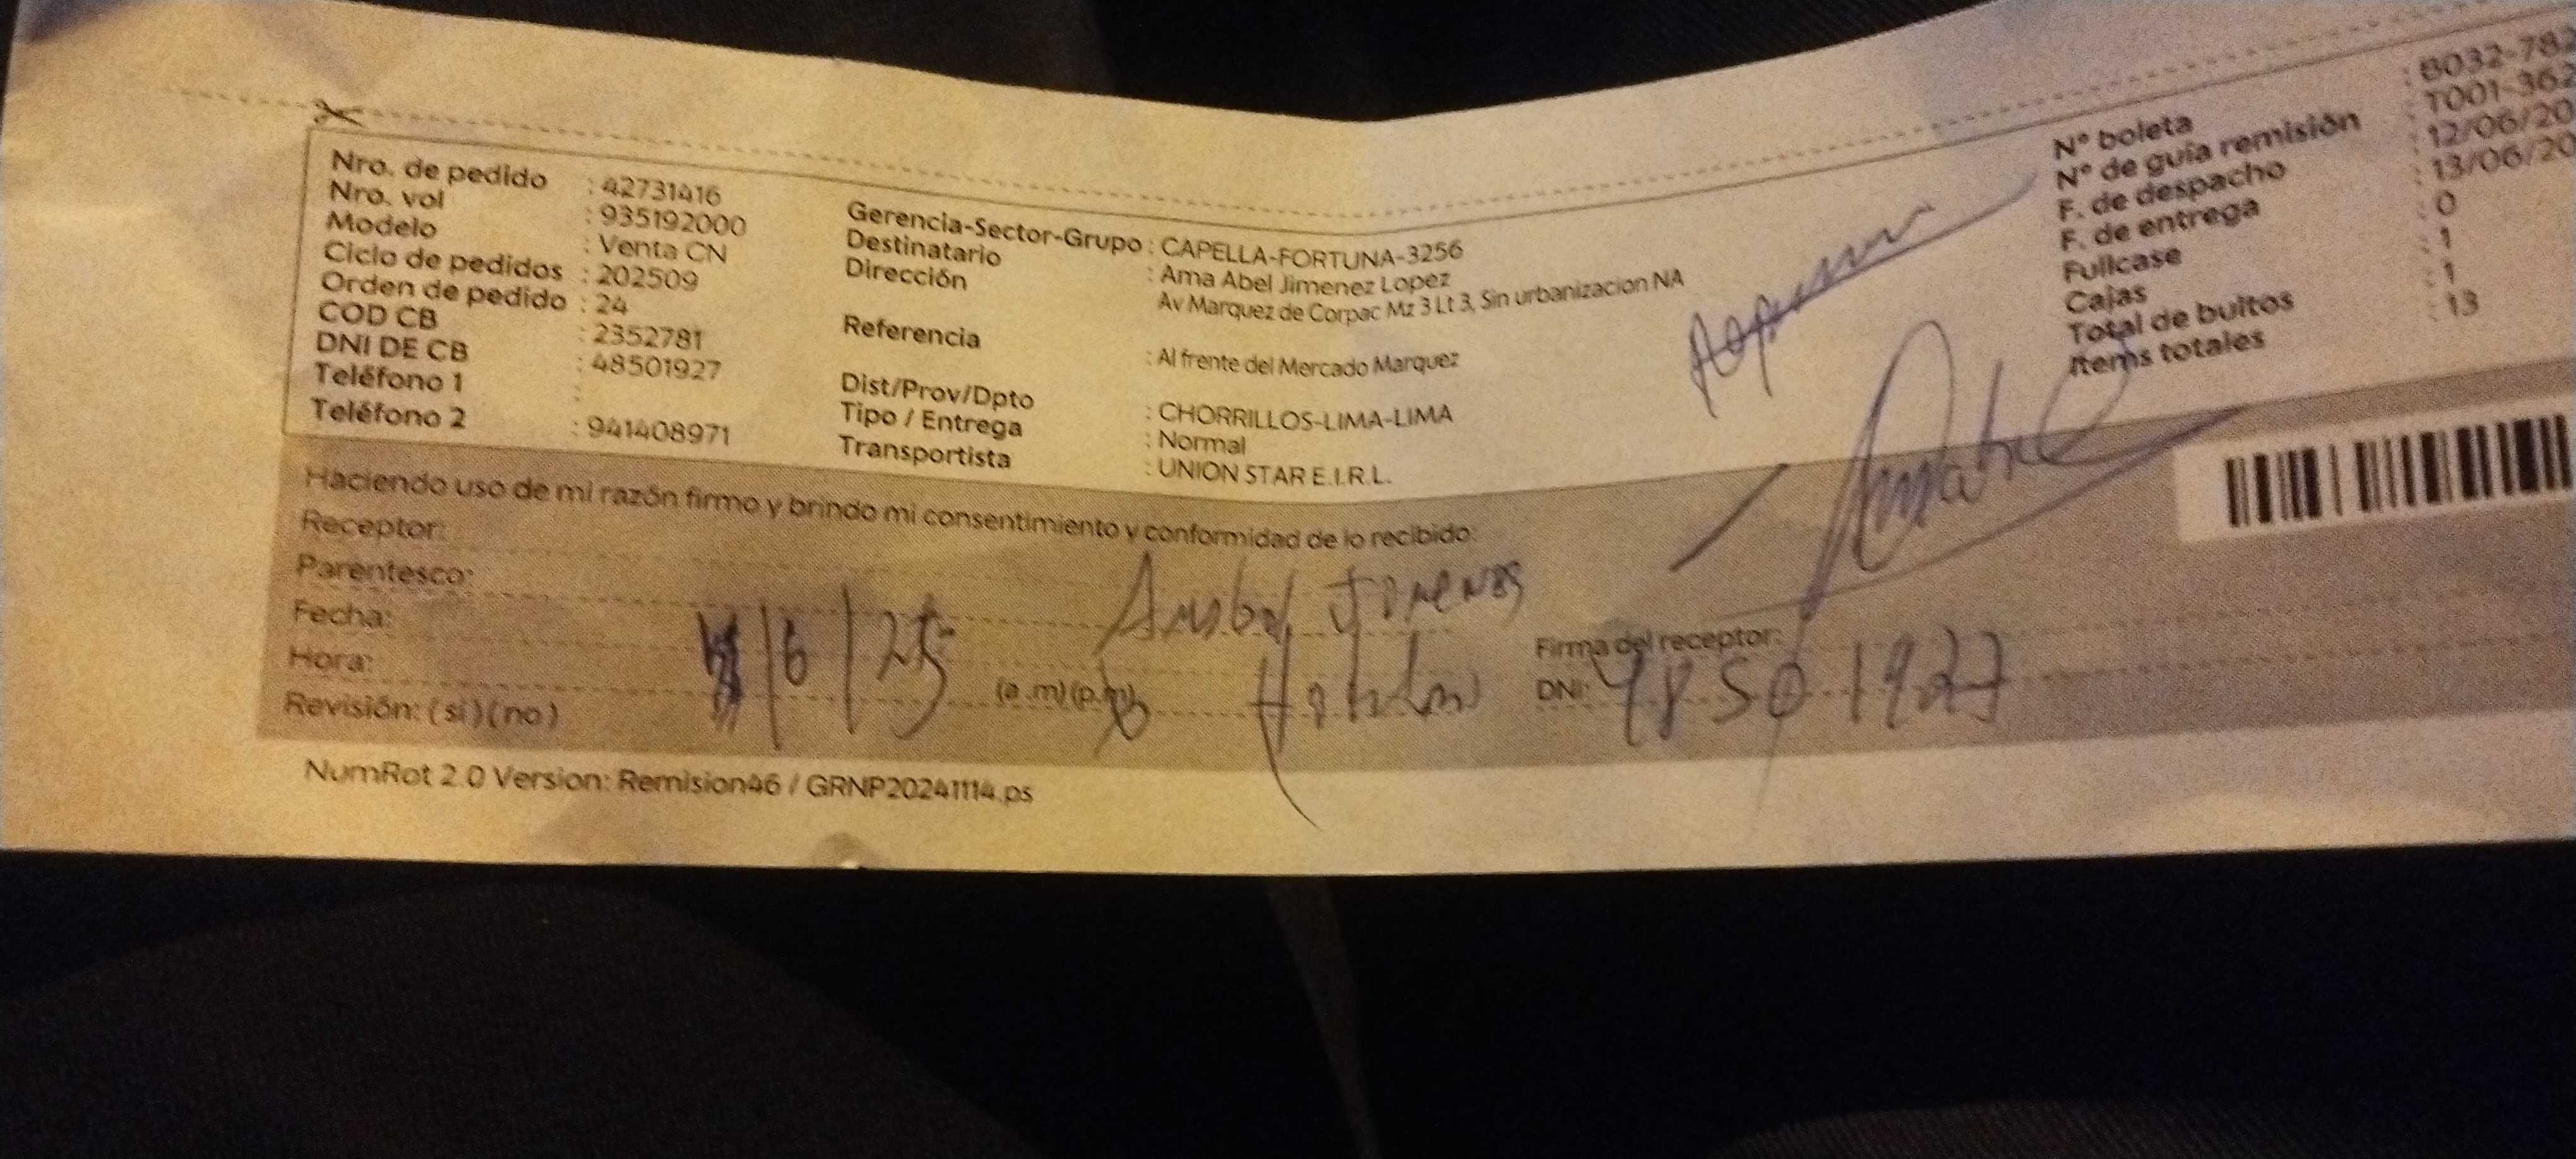 Nro. de pedido : 42731416
Nro. vol : 935192000
Modelo : Venta CN
Ciclo de pedidos : 202509
Orden de pedido : 24
COD CB : 2352781
DNI DE CB : 48501927
Teléfono 1 :
Teléfono 2 : 941408971
Gerencia-Sector-Grupo : CAPELLA-FORTUNA-3256
Destinatario : Ama Abel Jimenez Lopez
Dirección Av Marquez de Corpac Mz 3 Lt 3, Sin urbanizacion NA
Referencia : Al frente del Mercado Marquez
Dist/Prov/Dpto : CHORRILLOS-LIMA-LIMA
Tipo / Entrega : Normal
Transportista : UNION STAR E.I.R.L.
N° boleta : B032-782
N° de guía remisión : T001-362
F. de despacho : 12/06/20
F. de entrega : 13/06/20
Fullcase : 0
Cajas : 1
Total de bultos : 1
Items totales : 13
Haciendo uso de mi razón firmo y brindo mi consentimiento y conformidad de lo recibido:
Receptor:
Parentesco:
Fecha: /6/25
Hora: (a.m)(p.m)
Revisión: (si)(no)
Firma del receptor:
DNI: 48501927
NumRot 2.0 Version: Remision46 / GRNP20241114.ps